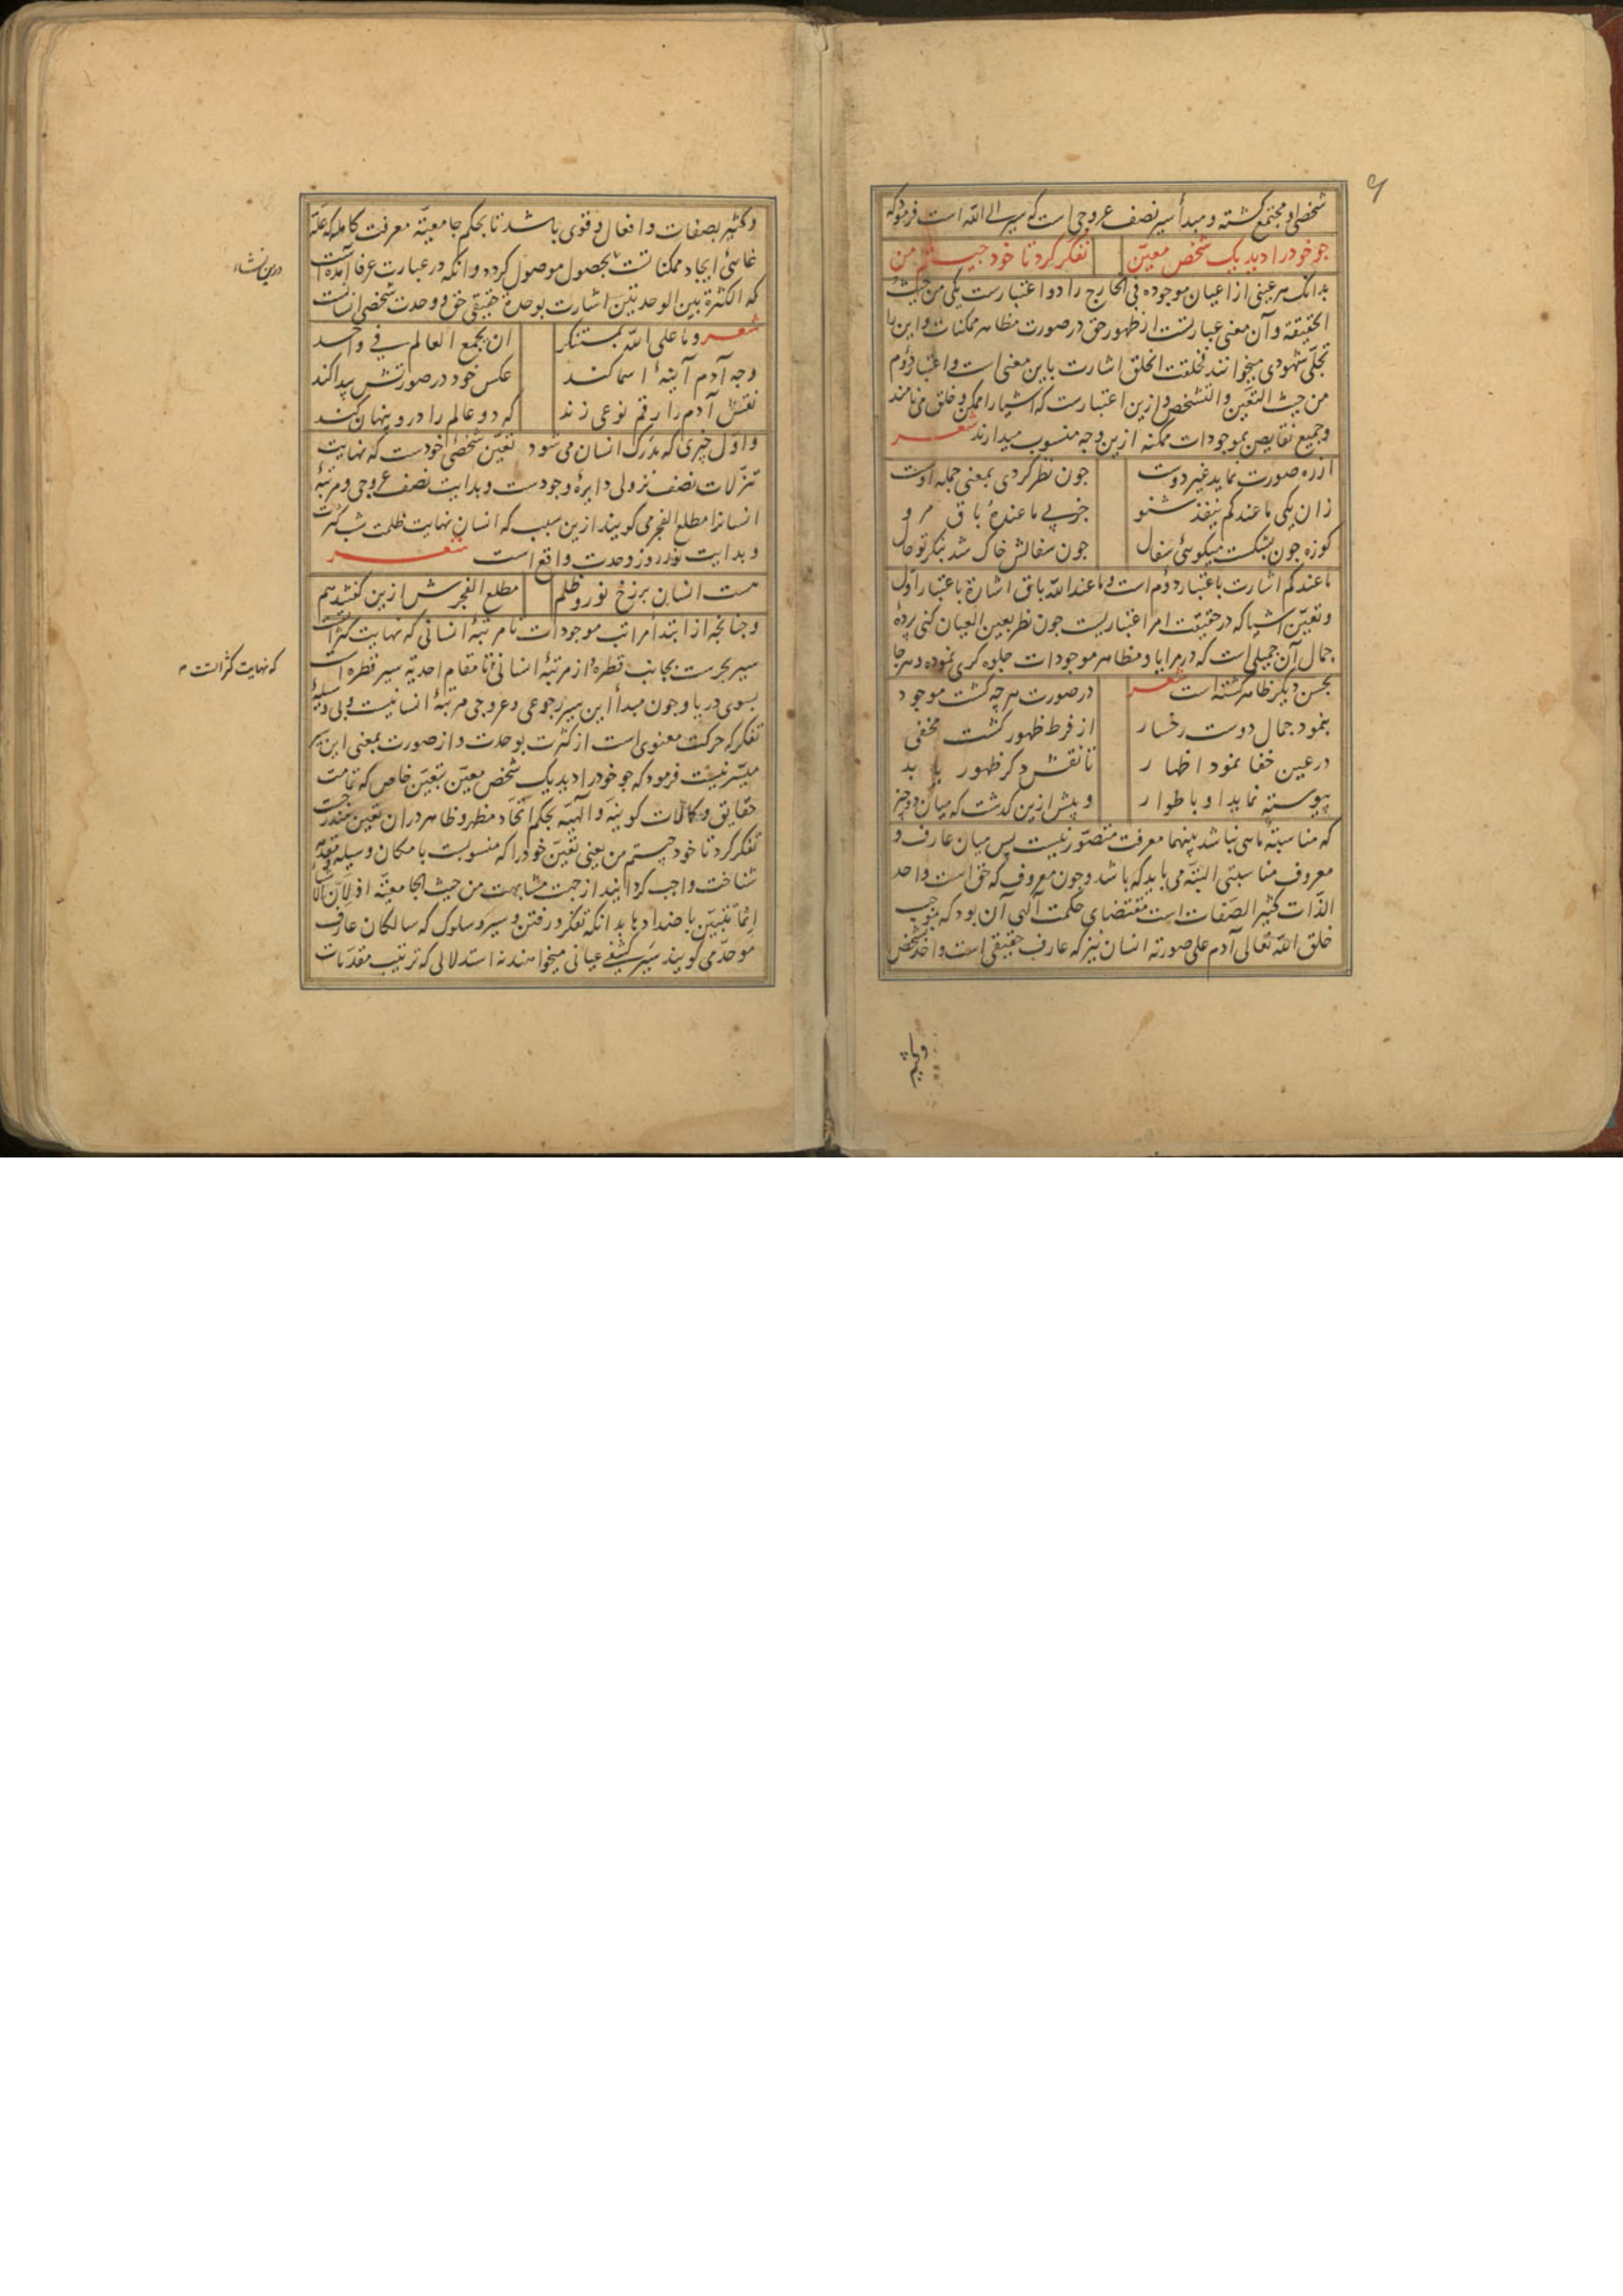 ۹
شخصی او مجتمع گشته و مبدأ سیر نصف عروجی است که سیر الی الله است فرمود که
جو خود را دید یک شخص معین تفکر کرد تا خود جیستم من
بدانک هر عینی از اعیان موجوده فی الخارج را دو اعتبارست یکی من حیث
الحقیقة و آن معنی عبارتست از ظهور حق در صورت مظاهر ممکنات و این را
تجلّی شهودی میخوانند فخلقت الخلق اشارت باین معنی است و اعتبار دوم
من حیث التعین و التشخص و ازین اعتبارست که اشیا را ممکن و خلق می نامند
و جمیع نقایص بموجودات ممکنه ازین وجه منسوب میدارند شعر
از ره صورت نماید غیر دوست جون نظر کردی بمعنی جمله اوست
زان یکی ما عندکم ینفد شنو جز پی ما عنده باق مرو
کوزه جون بشکست میکوئی سفال جون سفالش خاک شد بنکر تو حال
ما عندکم اشارت باعتبار دوم است و ما عند الله باق اشارة باعتبار اول
و تعیّن اشیا که در حقیقت امر اعتباریست جون نظر بعین العیان کنی پردهٔ
جمال آن جمیل است که در مرایا و مظاهر موجودات جلوه کری نموده و هر جا
بحسن دیکر ظاهر کشته است شعر در صورت هر چه کشت موجود
بنمود جمال دوست رخسار از فرط ظهور کشت مخفی
در عین خفا نمود اظهار تا نقش دکر ظهور یابد
پیوسته نماید او باطوار و پیش ازین کذشت که میان دو چیز
که مناسبة ما نباشد بینهما معرفت متصوّر نیست پس میان عارف و
معروف مناسبتی البته می باید که باشد و جون معروف که حق است واحد
الذّات کثیر الصفات است مقتضای حکمت الهی آن بود که بموجب
خلق الله تعالی آدم علی صورته انسان نیز که عارف حقیقی است واحد شخص
و کثیر بصفات و افعال و قوی باشد تا بحکم جامعیّة معرفت کامله که علّة
غائی ایجاد ممکناتست بحصول موصول کردد و انکه در عبارت عرفا آمده است
که الکثرة بین الوحدتین اشارت بوحدة حقیقی حق و وحدت شخصی انسانست
شعر و ما علی الله بمستنکر ان یجمع العالم فی واحد
وجه آدم آینهٔ اسما کند عکس خود در صورتش پیدا کند
نقش آدم را رقم نوعی زند که دو عالم را در و پنهان کند
و اول چیزی که مدرک انسان می شود تعیّن شخصی خودست که نهایت
تنزلات نصف نزولی دایرهٔ وجودست و بدایت نصف عروجی و مرتبهٔ
انسانرا مطلع الفجر می کویند ازین سبب که انسان نهایت ظلمت شب کثرت
و بدایت نور روز وحدت واقع است شعر
هست انسان برزخ نور و ظلم مطلع الفجرش ازین کفتند هم
و جنانجه از ابتدا مراتب موجودات تا مرتبهٔ انسانی که نهایت کثراتست
سیر بحرست بجانب قطره و از مرتبهٔ انسانی تا مقام احدیة سیر قطره است
بسوی دریا و جون مبدأ این سیر رجوعی و عروجی مرتبهٔ انسانیست و بی وسیلهٔ
تفکر که حرکت معنوی است از کثرت بوحدت و از صورت بمعنی این سیر
میسّر نیست فرمود که جو خود را دید یک شخص معین بتعیّن خاص که تمامت
حقایق و کمالات کونیة و الهیّه بحکم اتحاد مظهر و ظاهر در ان تعیّن مندرجست
تفکر کرد تا خود جیستم من یعنی تعیّن خود را که منسوبست بامکان وسیله معرفت
شناخت واجب کردانید از جهت مشابهت من حیث الجامعیّة او لان الاشیاء
انما تتبیّن باضدادها بدانکه تفکر و رفتن و سیر و سلوک که سالکان عارف
موحّد می کویند سیر کشفی عیانی میخواهند نه استدلالی که ترتیب مقدّمات
درین نشاء
که نهایت کثراتست
و کثیر